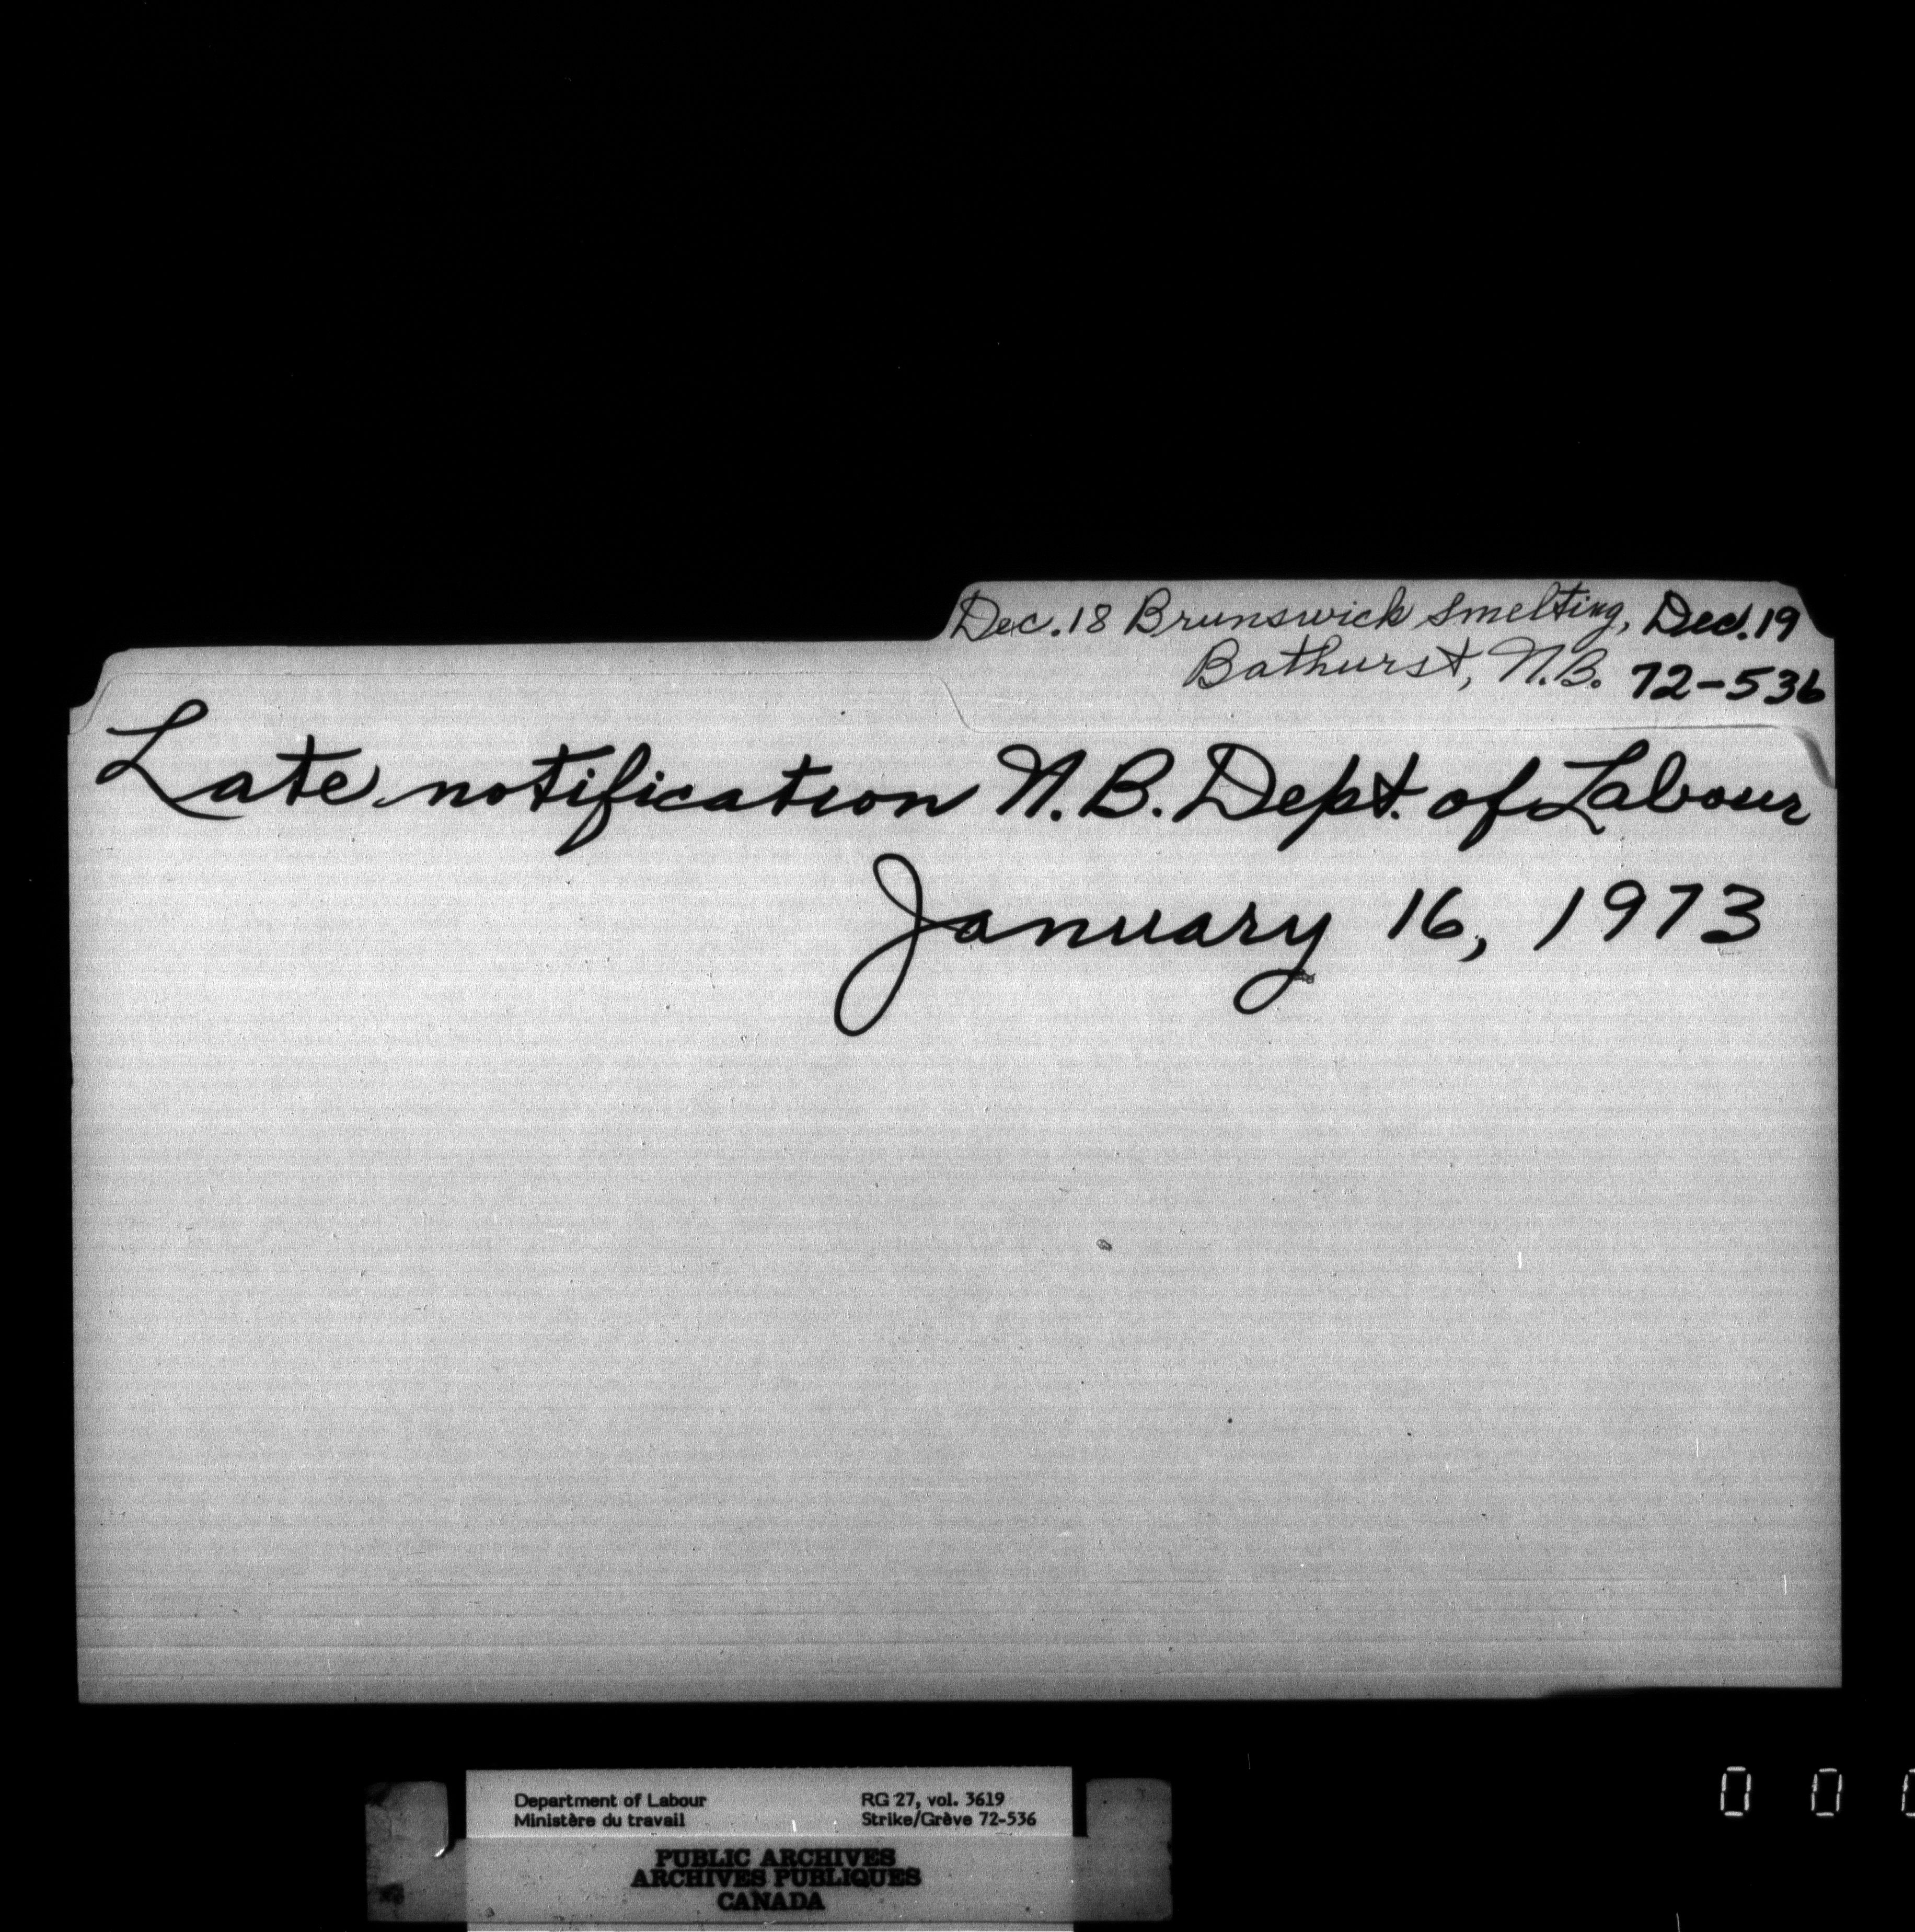 Dec. 18 Brunswick Smelting, Dec. 19
Bathurst, N.B. 72-536
Late notification N.B. Dept. of Labour
January 16, 1973
Department of Labour RG 27, vol. 3619
Ministère du travail Strike/Grève 72-536
PUBLIC ARCHIVES
ARCHIVES PUBLIQUES
CANADA
0 0